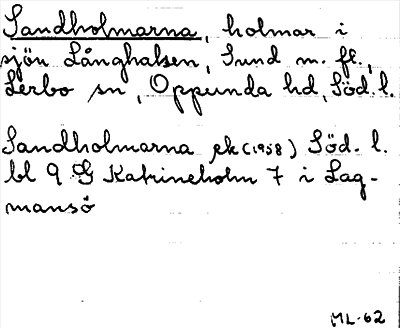 Sandholmarna, holmar i
sjön Långhalsen, Sund m. fl.,
Lerbo sn, Oppunda hd, Söd. l.
Sandholmarna ek (1958) Söd. l.
bl 9 G Katrineholm 7 i Lag-
mansö
ML-62